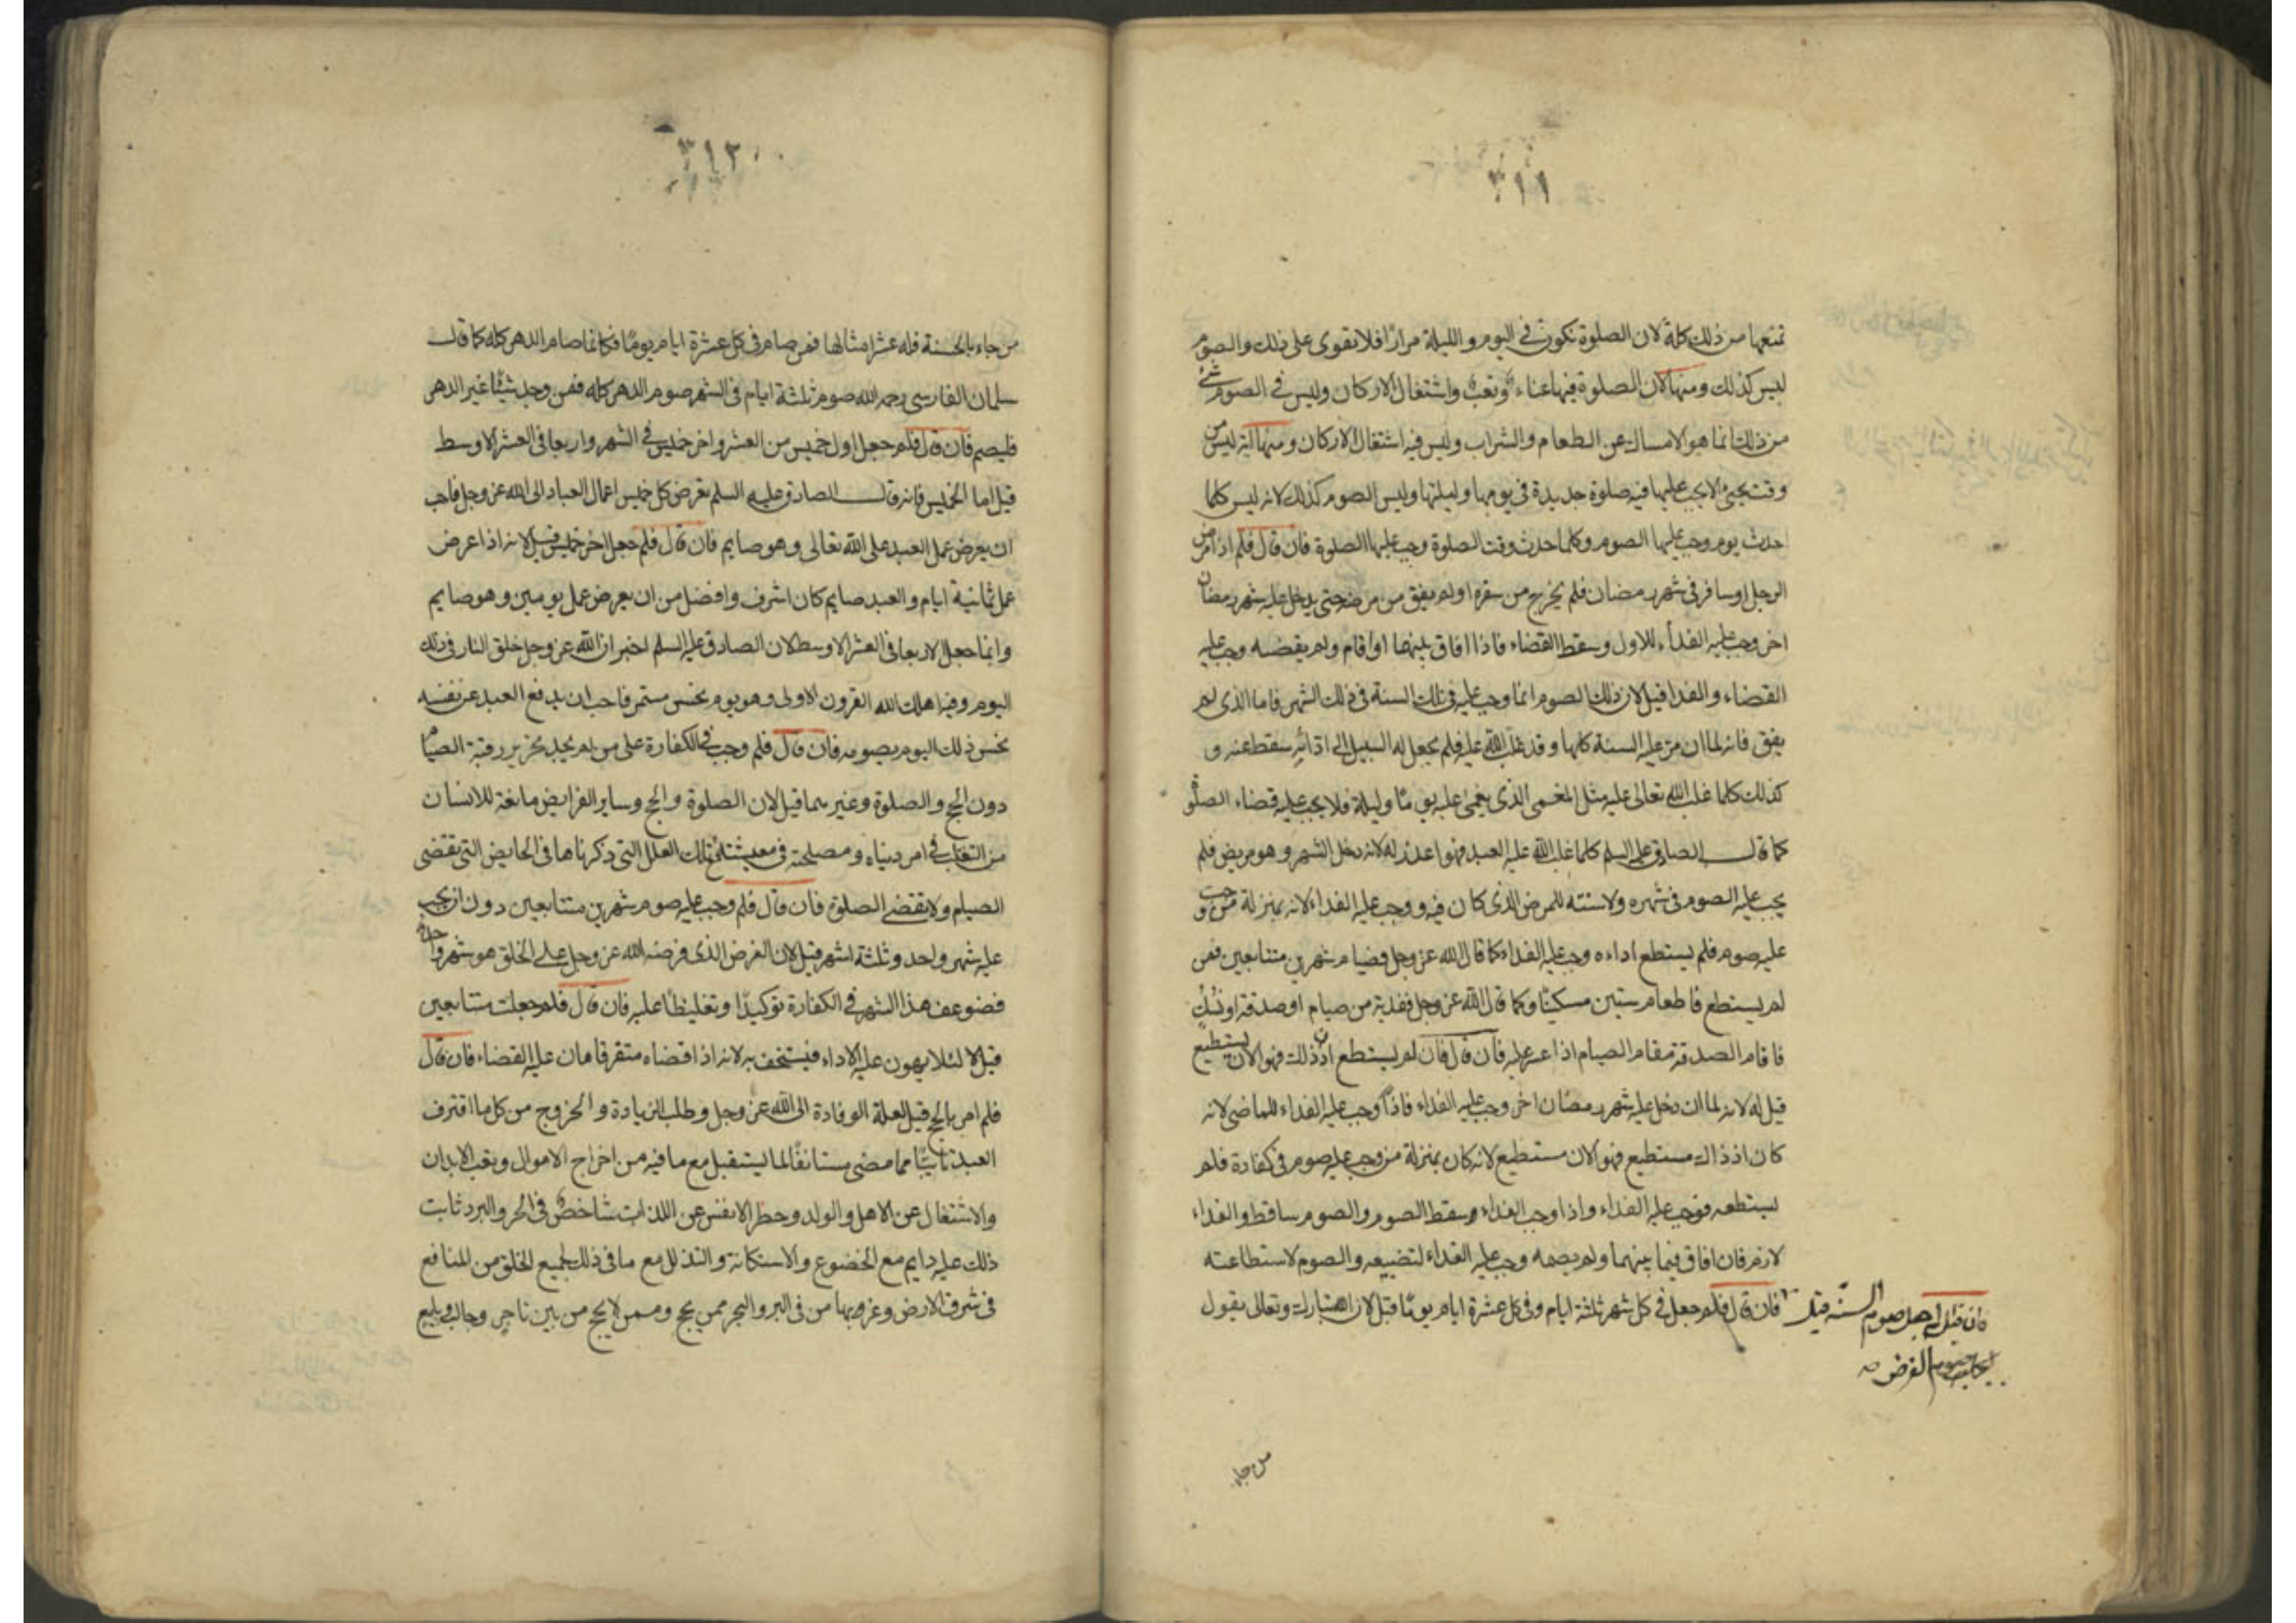 ٣١١
تمنعها من ذلك كله لان الصلوة تكون في اليوم والليلة مرارًا فلا تقوى على ذلك والصوم
ليس كذلك ومنها لان الصلوة فيها عناء وتعب واشتغال الاركان وليس في الصوم شئ
من ذلك انما هو الامساك عن الطعام والشراب وليس فيه اشتغال الاركان ومنها انه ليس من
وقت يجئ الا يجب عليها فيه صلوة جديدة في يومها وليلتها وليس الصوم كذلك لانه ليس كلما
حدث يوم وجب عليها الصوم وكلما حدث وقت الصلوة وجب عليها الصلوة فان قال فلم اذا مرض
الرجل او سافر في شهر رمضان فلم يخرج من سفره او لم يفق من مرضه حتى يدخل عليه شهر رمضان
اخر وجب عليه الفداء للاول وسقط القضاء فاذا افاق بينهما او اقام ولم يقضه وجب عليه
القضاء والفدا قيل لان ذلك الصوم انما وجب عليه في تلك السنة في ذلك الشهر فاما الذى لم
يفق فانه لما ان مر عليه السنة كلها وقد غلب الله عليه فلم يجعل له السبيل الى ادائه سقط عنه و
كذلك كلما غلب الله تعالى عليه مثل المغمى الذى يغمى عليه يومًا وليلة فلا يجب عليه قضاء الصلوة
كما قال الصادق عليه السلم كلما غلب الله عليه العبد فهو اعذر له لانه دخل الشهر وهو مريض فلم
يجب عليه الصوم في شهره ولا سنته للمرض الذى كان فيه ووجب عليه الفداء لانه بمنزلة من وجب
عليه صوم فلم يستطع اداءه وجب عليه الفداء كما قال الله عز وجل فصيام شهرين متتابعين فمن
لم يستطع فاطعام ستين مسكينًا وكما قال الله عز وجل ففدية من صيام او صدقة او نسك
فاقام الصدقة مقام الصيام اذا عسر عليه فان قال فان لم يستطع اذ ذلك فهو الان يستطيع
قيل له لانه لما ان دخل عليه شهر رمضان اخر وجب عليه الفداء فاذًا وجب عليه الفداء للماضى لانه
كان اذ ذاك مستطيع فهو الان مستطيع لانه كان بمنزلة من وجب عليه صوم في كفارة فلم
يستطعه فوجب عليه الفداء واذا وجب الفداء وسقط الصوم والصوم ساقط والفداء
لازم فان افاق فيما بينهما ولم يصمه وجب عليه الفداء لتضييعه والصوم لاستطاعته
فان قال فلم جعل في كل شهر ثلثة ايام وفي كل عشرة ايام يومًا قيل لان الله تبارك وتعالى يقول
فان قيل لم جعل صوم السنه قيل
ليكمل به صوم الفرض
من جاء
٣١٢
من جاء بالحسنة فله عشر امثالها فمن صام في كل عشرة ايام يومًا فكانما صام الدهر كله كما قال
سلمان الفارسى رحمه الله صوم ثلثة ايام في الشهر صوم الدهر كله فمن وجد شيئًا غير الدهر
فليصم فان قال فلم جعل اول خميس من العشر واخر خميس في الشهر واربعا في العشر الاوسط
قيل اما الخميس فانه قال الصادق عليه السلم يعرض كل خميس اعمال العباد الى الله عز وجل فاحب
ان يعرض عمل العبد على الله تعالى وهو صايم فان قال فلم جعل اخر خميس قيل لانه اذا عرض
عمل ثمانية ايام والعبد صايم كان اشرف وافضل من ان يعرض عمل يومين وهو صايم
وانما جعل الاربعا في العشر الاوسط لان الصادق عليه السلم اخبر ان الله عز وجل خلق النار في ذلك
اليوم وفيه اهلك الله القرون الاولى وهو يوم نحس مستمر فاحب ان يدفع العبد عن نفسه
نحس ذلك اليوم بصومه فان قال فلم وجب في الكفارة على من لم يجد تحرير رقبة الصيام
دون الحج والصلوة وغيرهما قيل لان الصلوة والحج وساير الفرايض مانعة للانسان
من التقلب في امر دنياه ومصلحة في معيشته مع تلك العلل التى ذكرناها في الحايض التى تقضى
الصيام ولا تقضى الصلوة فان قال فلم وجب عليه صوم شهرين متتابعين دون ان يجب
عليه شهر واحد وثلثة اشهر قيل لان الفرض الذى فرضه الله عز وجل على الخلق هو شهر واحد
فضوعف هذا الشهر في الكفارة توكيدًا وتغليظًا عليه فان قال فلم جعلت متتابعين
قيل لا لئلا يهون عليه الاداء فيستخف به لانه اذا قضاه متفرقا هان عليه القضاء فان قال
فلم امر بالحج قيل لعلة الوفادة الى الله عز وجل وطلب الزيادة والخروج من كل ما اقترف
العبد تايبًا مما مضى مستانفًا لما يستقبل مع ما فيه من اخراج الاموال وتعب الابدان
والاشتغال عن الاهل والولد وحظر الانفس عن اللذات شاخص في الحر والبرد ثابت
ذلك عليه دايم مع الخضوع والاستكانة والتذلل مع ما في ذلك لجميع الخلق من المنافع
في شرق الارض وغربها من في البر والبحر ممن يحج وممن لا يحج من بين تاجر وجالب وبايع